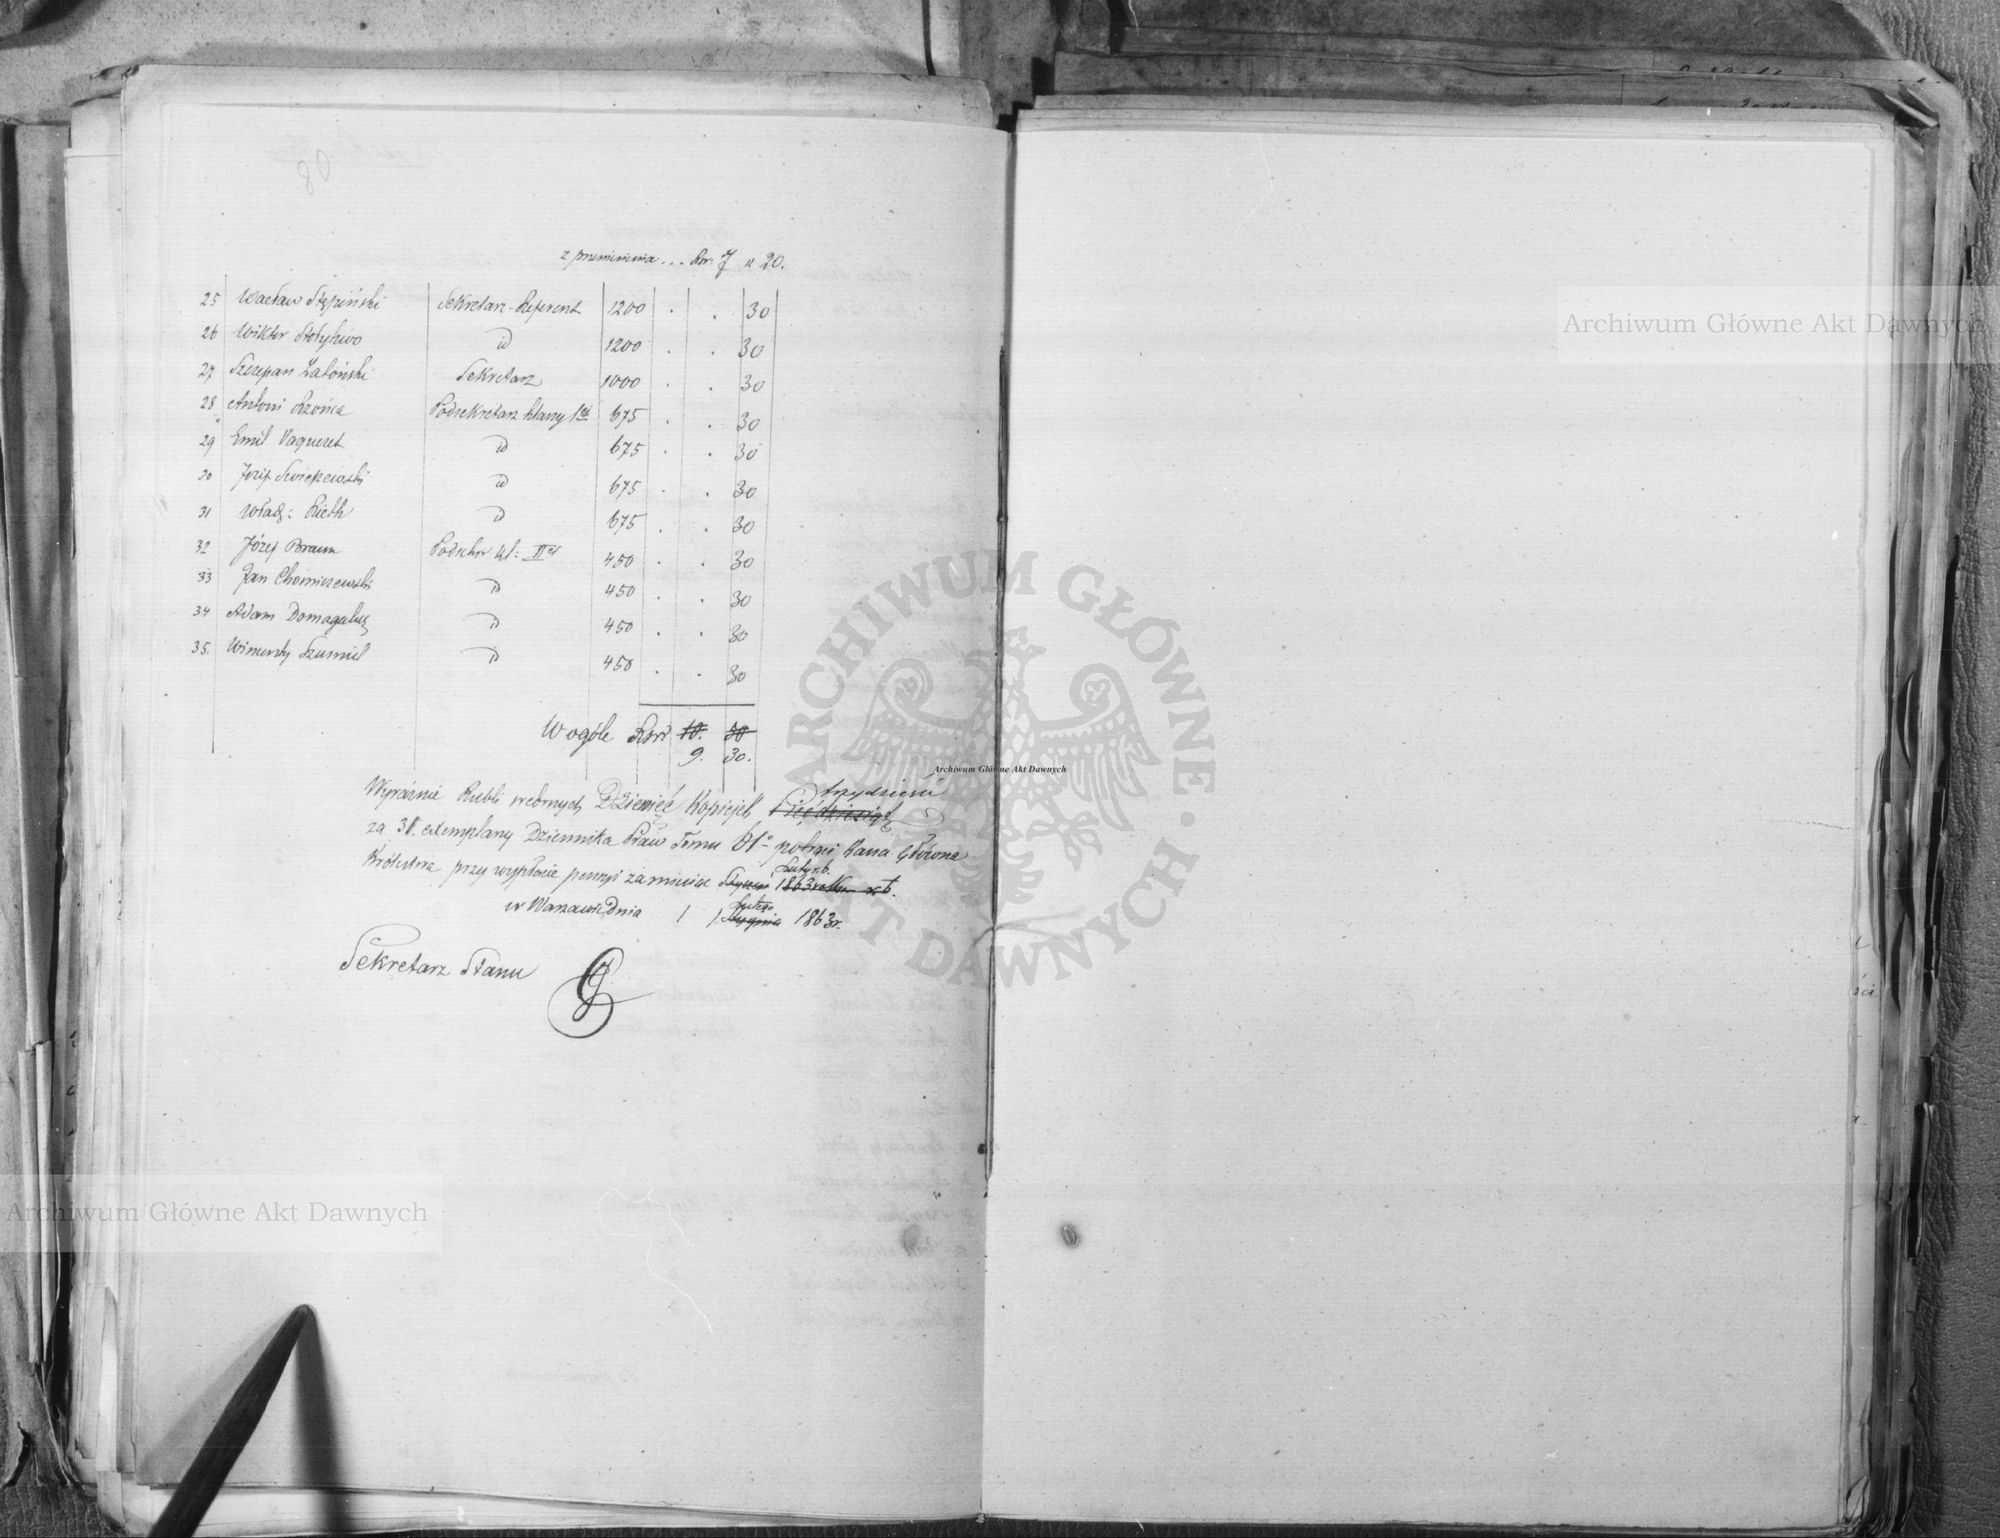 80
z przeniesienia... Rsr. 7 k 20.
25 Wacław Stępiński Sekretarz-Referent 1200 . . 30
26 Wiktor Stołyhwo id 1200 . . 30
27 Szczepan Sekretarz 1000 . . 30
28 Antoni Rzońca Podsekretarz klassy Iéj 675 . . 30
29 Emil Vaqueret id 675 . . 30
30 Józef Świeżewski id 675 . . 30
31 Wład: Rieth id 675 . . 30
32 Józef Braun Podsekr kl: IIéj 450 . . 30
33 Jan Chomiczewski id 450 . . 30
34 Adam Domagalski id 450 . . 30
35. Wincenty Szumiel id 450 . . 30
W ogóle Rsr 10. 50
9. 30.
trzydzieści
Wyraźnie Rubli srebrnych Dziewięć Kopiejek Pięćdziesiąt
za 31. exemplarzy Dziennika Praw Tomu 61o potrąci Kassa Główna
Luty r.b.
Królestwa przy wypłacie pensyi za miesiąc Styczeń 1863 roku
Lutego
w Warszawie Dnia / /. Stycznia 1863 r.
Sekretarz Stanu
Archiwum Główne Akt Dawnych
Archiwum Główne Akt Dawnych
Archiwum Główne Akt Dawnych
ARCHIWUM GŁÓWNE AKT DAWNYCH